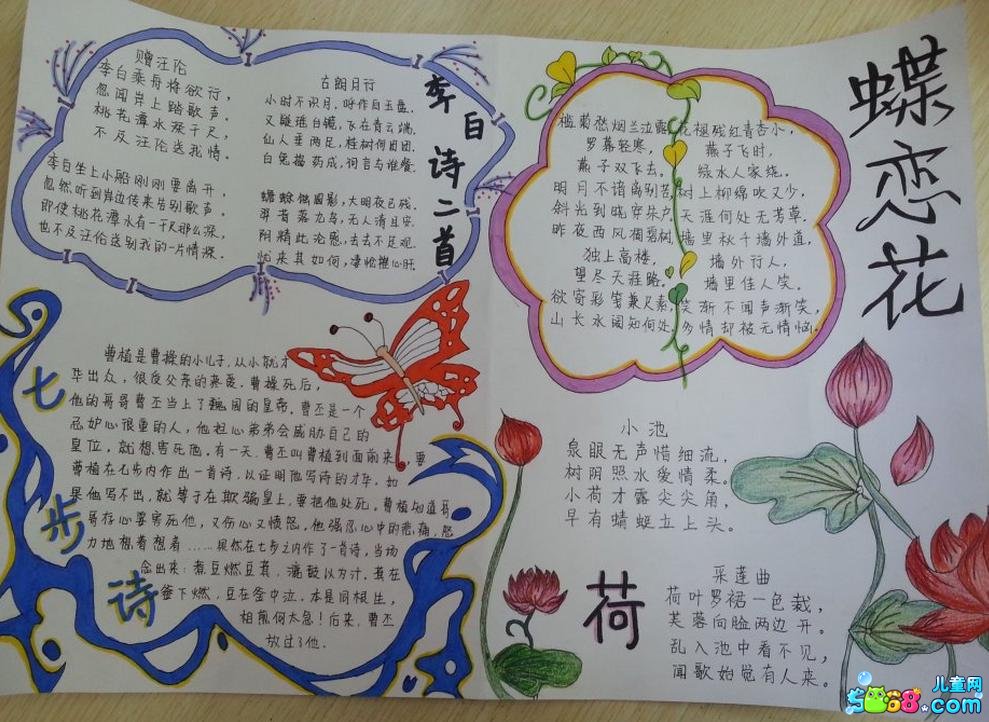 李白诗二首
赠汪伦
李白乘舟将欲行，
忽闻岸上踏歌声。
桃花潭水深千尺，
不及汪伦送我情。
李白坐上小船刚刚要离开，
忽然听到岸边传来告别歌声。
即使桃花潭水有一千尺那么深，
也不及汪伦送别我的一片情深。
古朗月行
小时不识月，呼作白玉盘。
又疑瑶台镜，飞在青云端。
仙人垂两足，桂树何团团。
白兔捣药成，问言与谁餐。
蟾蜍蚀圆影，大明夜已残。
羿昔落九乌，天人清且安。
阴精此沦惑，去去不足观。
忧来其如何，凄怆摧心肝。
蝶恋花
槛菊愁烟兰泣露
罗幕轻寒，
燕子双飞去。
明月不谙离别苦
斜光到晓穿朱户
昨夜西风凋碧树
独上高楼，
望尽天涯路。
欲寄彩笺兼尺素
山长水阔知何处
花褪残红青杏小，
燕子飞时，
绿水人家绕。
树上柳绵吹又少，
天涯何处无芳草。
墙里秋千墙外道，
墙外行人，
墙里佳人笑。
笑渐不闻声渐笑，
多情却被无情恼。
七步诗
曹植是曹操的小儿子，从小就才
华出众，很受父亲的疼爱。曹操死后，
他的哥哥曹丕当上了魏国的皇帝。曹丕是一个
忌妒心很重的人，他担心弟弟会威胁自己的
皇位，就想害死他。有一天，曹丕叫曹植到面前来，要
曹植在七步内作出一首诗，以证明他写诗的才华，如
果他写不出，就等于在欺骗皇上，要把他处死。曹植知道哥
哥存心要害死他，又伤心又愤怒。他强忍心中的悲痛，努
力地想着想着……果然在七步之内作了一首诗，当场
念出来：煮豆燃豆萁，漉鼓以为汁，萁在
釜下燃，豆在釜中泣。本是同根生，
相煎何太急！后来，曹丕
放过了他。
小池
泉眼无声惜细流，
树阴照水爱情柔。
小荷才露尖尖角，
早有蜻蜓立上头。
荷
采莲曲
荷叶罗裙一色裁，
芙蓉向脸两边开。
乱入池中看不见，
闻歌始觉有人来。
儿童网
5068.com